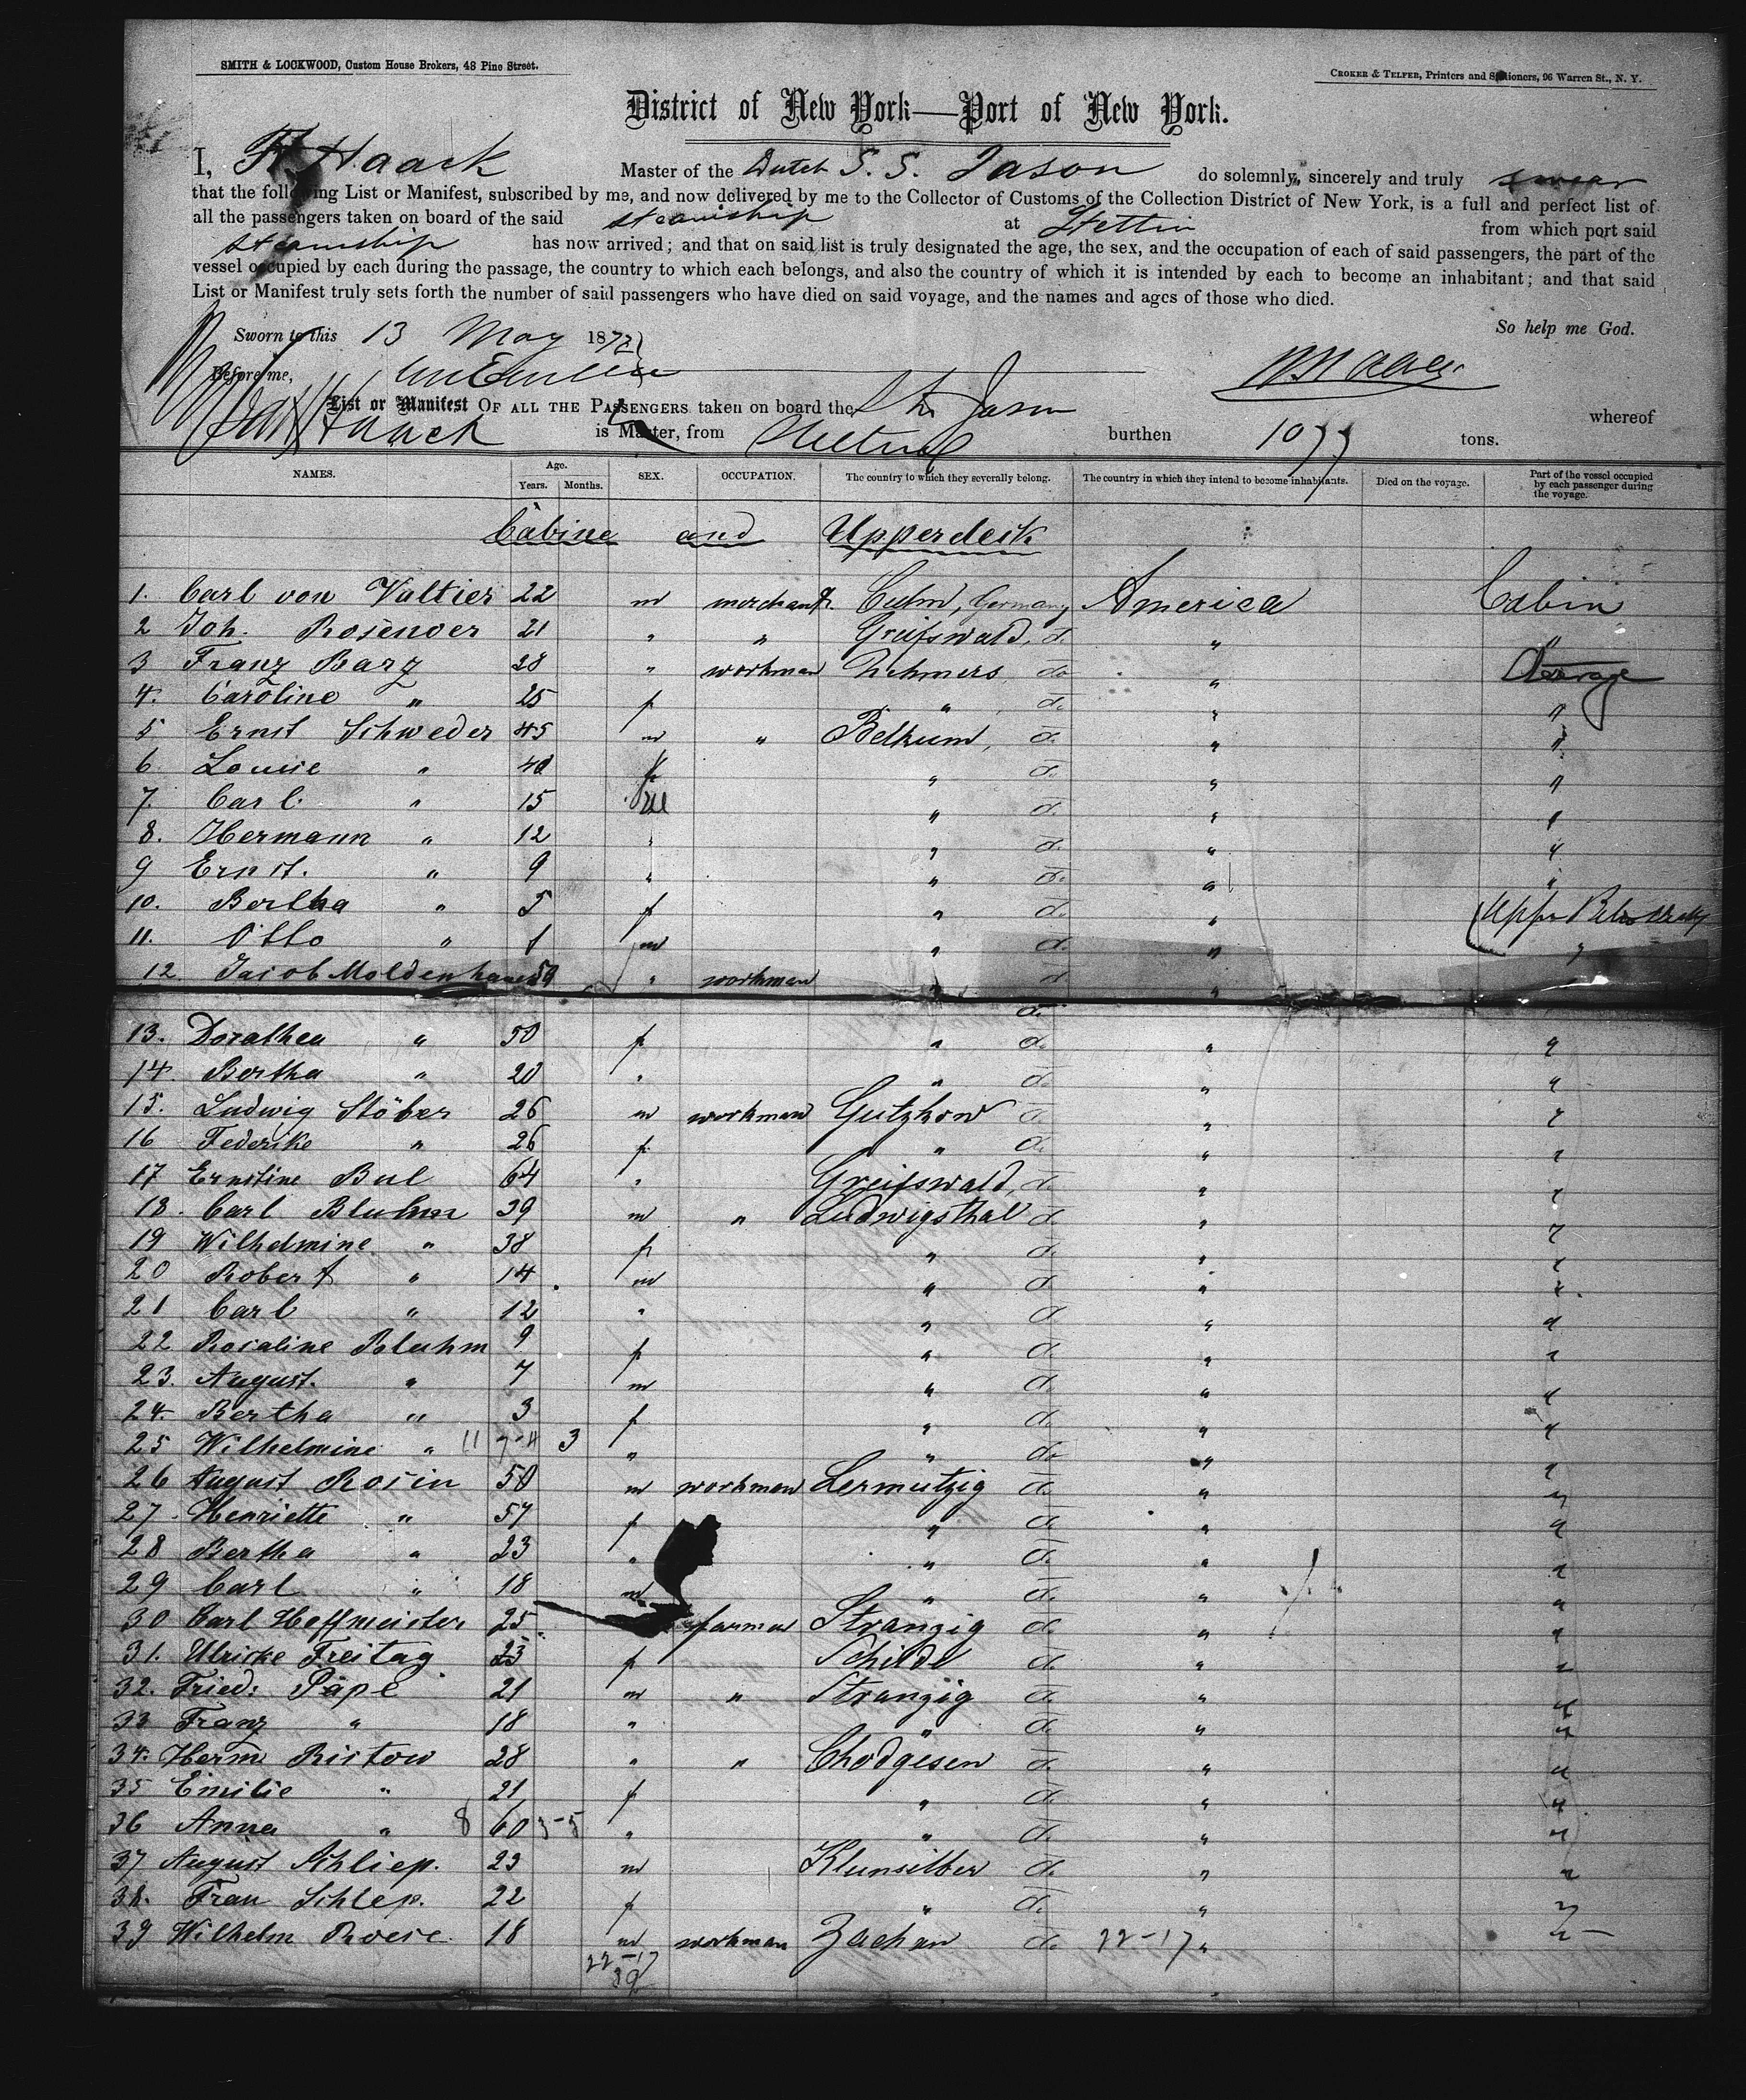 SMITH & LOCKWOOD, Custom House Brokers, 48 Pine Street.
CROKER & TELFER, Printers and Stationers, 96 Warren St., N. Y.
District of New York—Port of New York.
I, F Haack Master of the Dutch S. S. Jason do solemnly, sincerely and truly swear
that the following List or Manifest, subscribed by me, and now delivered by me to the Collector of Customs of the Collection District of New York, is a full and perfect list of
all the passengers taken on board of the said steamship at Stettin from which port said
steamship has now arrived; and that on said list is truly designated the age, the sex, and the occupation of each of said passengers, the part of the
vessel occupied by each during the passage, the country to which each belongs, and also the country of which it is intended by each to become an inhabitant; and that said
List or Manifest truly sets forth the number of said passengers who have died on said voyage, and the names and ages of those who died.
So help me God.
Sworn to this 13 May 187
Before me,
List or Manifest OF ALL THE PASSENGERS taken on board the Str Jason whereof
Haack is Master, from Stettin burthen 1077 tons.
NAMES. Age. Years. Months. SEX. OCCUPATION. The country to which they severally belong. The country in which they intend to become inhabitants. Died on the voyage. Part of the vessel occupied by each passenger during the voyage.
Cabine and Upperdeck
1. Carl von Valtier 22 m merchant Culm, Germany America Cabin
2 Joh. Rosenoer 21 " " Greifswald, do " "
3 Franz Barz 28 " workman Nehmers do " Steerage
4. Caroline " 25 f " do " "
5 Ernst Schweder 45 m " Belkum, do " "
6. Louise " 40 f " do " "
7. Carl. " 15 m " do " "
8. Hermann " 12 " " do " "
9 Ernst. " 9 " " do " "
10. Bertha " 5 f " do " Upper
11. Otto " 1 m " do " "
12 Jacob Moldenhauer 50 " workman " do "
13. Dorathea " 50 f " do " "
14. Bertha " 20 " " do " "
15. Ludwig Stöber 26 m workman Gutzkow do " "
16 Federike " 26 f " do " "
17 Ernstine Bul 64 " Greifswald, do " "
18. Carl Bluhm 39 m " Ludwigsthal do " "
19 Wilhelmine " 38 f " do " "
20 Robert " 14 m " do " "
21 Carl " 12 " " do " "
22 Rosaline Bluhm 9 f " do " "
23. August. " 7 m " do " "
24. Bertha " 3 f " do " "
25 Wilhelmine " 11 3 " " do " "
26 August Rosin 50 m workman Lermutzig do " "
27. Henriette " 57 f " do " "
28 Bertha " 23 " " do " "
29 Carl " 18 m " do " "
30 Carl Hoffmeister 25 farmer Stranzig do " "
31. Ulricke Freitag 23 f Schilde do " "
32. Fried: Päpe 21 m " Stranzig do " "
33 Franz " 18 " " do " "
34. Herm Ristow 28 " " Chodgesen do " "
35 Emilie " 21 f " do " "
36 Anna " 8 60 3-5 " " do " "
37 August Schliep. 23 m Klunsilber do " "
38. Frau Schlep. 22 f " do " "
39 Wilhelm Roese 18 m workman Zachan do 22-17 " "
22-17
39